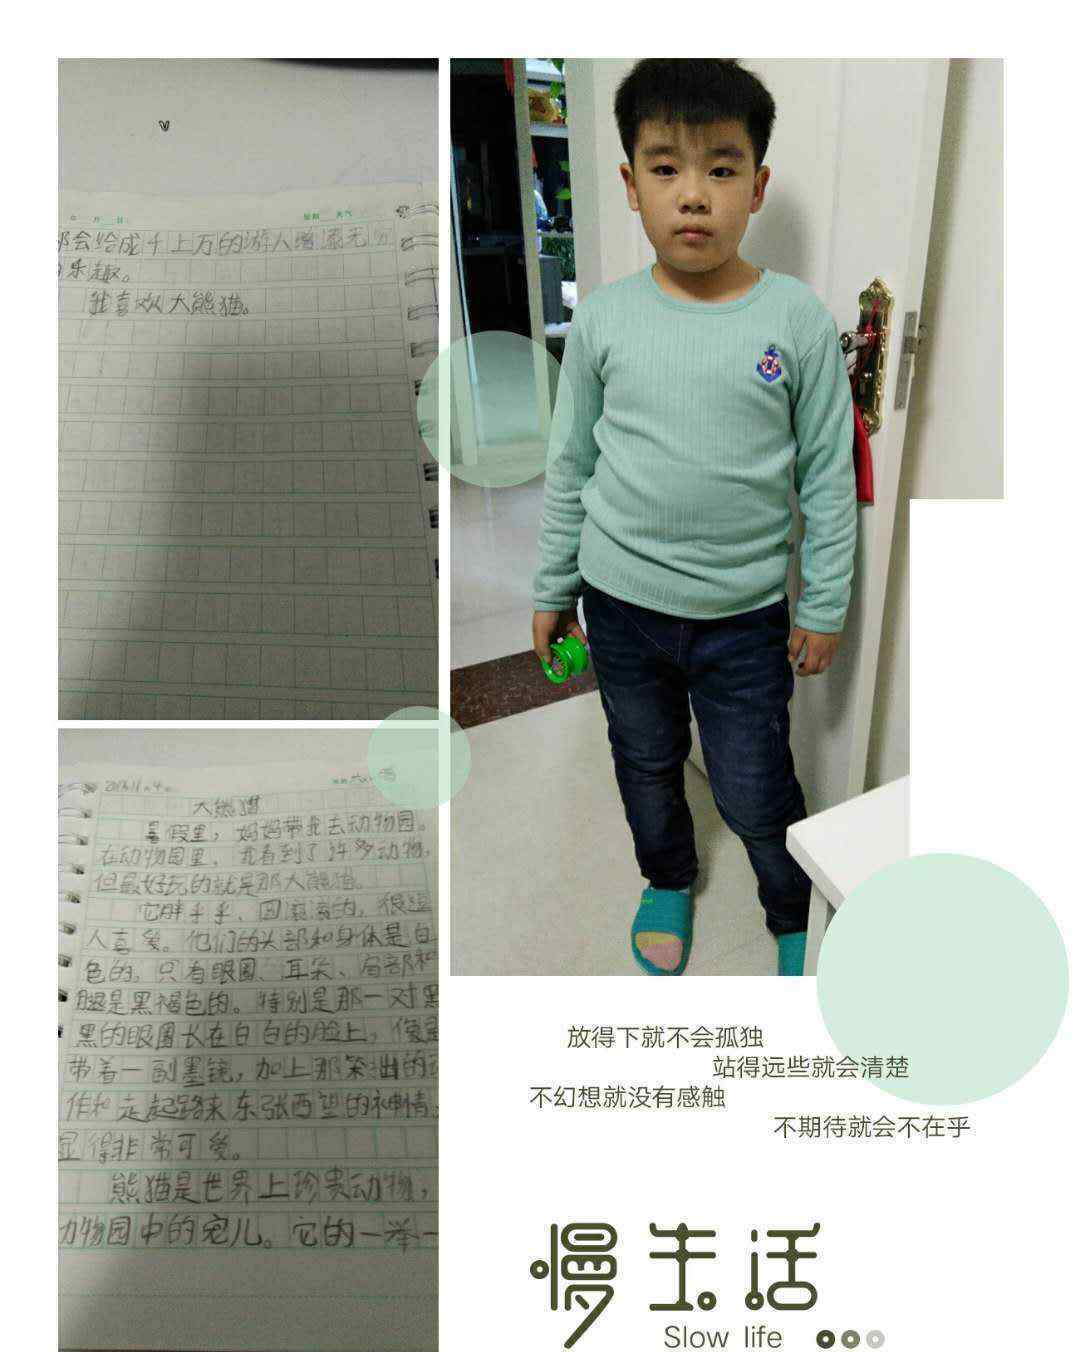 年 月 日
星期 天气
都会给成千上万的游人增添无穷
的乐趣。
我喜欢大熊猫。
大熊猫
暑假里,妈妈带我去动物园。
在动物园里,我看到了许多动物,
但最好玩的就是那大熊猫。
它胖乎乎、圆滚滚的,很逗
人喜爱。他们的头部和身体是白
色的,只有眼圈、耳朵、肩部和
腿是黑褐色的。特别是那一对黑
黑的眼圈长在白白的脸上,像是
带着一副墨镜,加上那笨拙的动
作和走起路来东张西望的神情,
显得非常可爱。
熊猫是世界上珍贵动物,
动物园中的宠儿。它的一举一
放得下就不会孤独
站得远些就会清楚
不幻想就没有感触
不期待就会不在乎
慢生活
Slow life